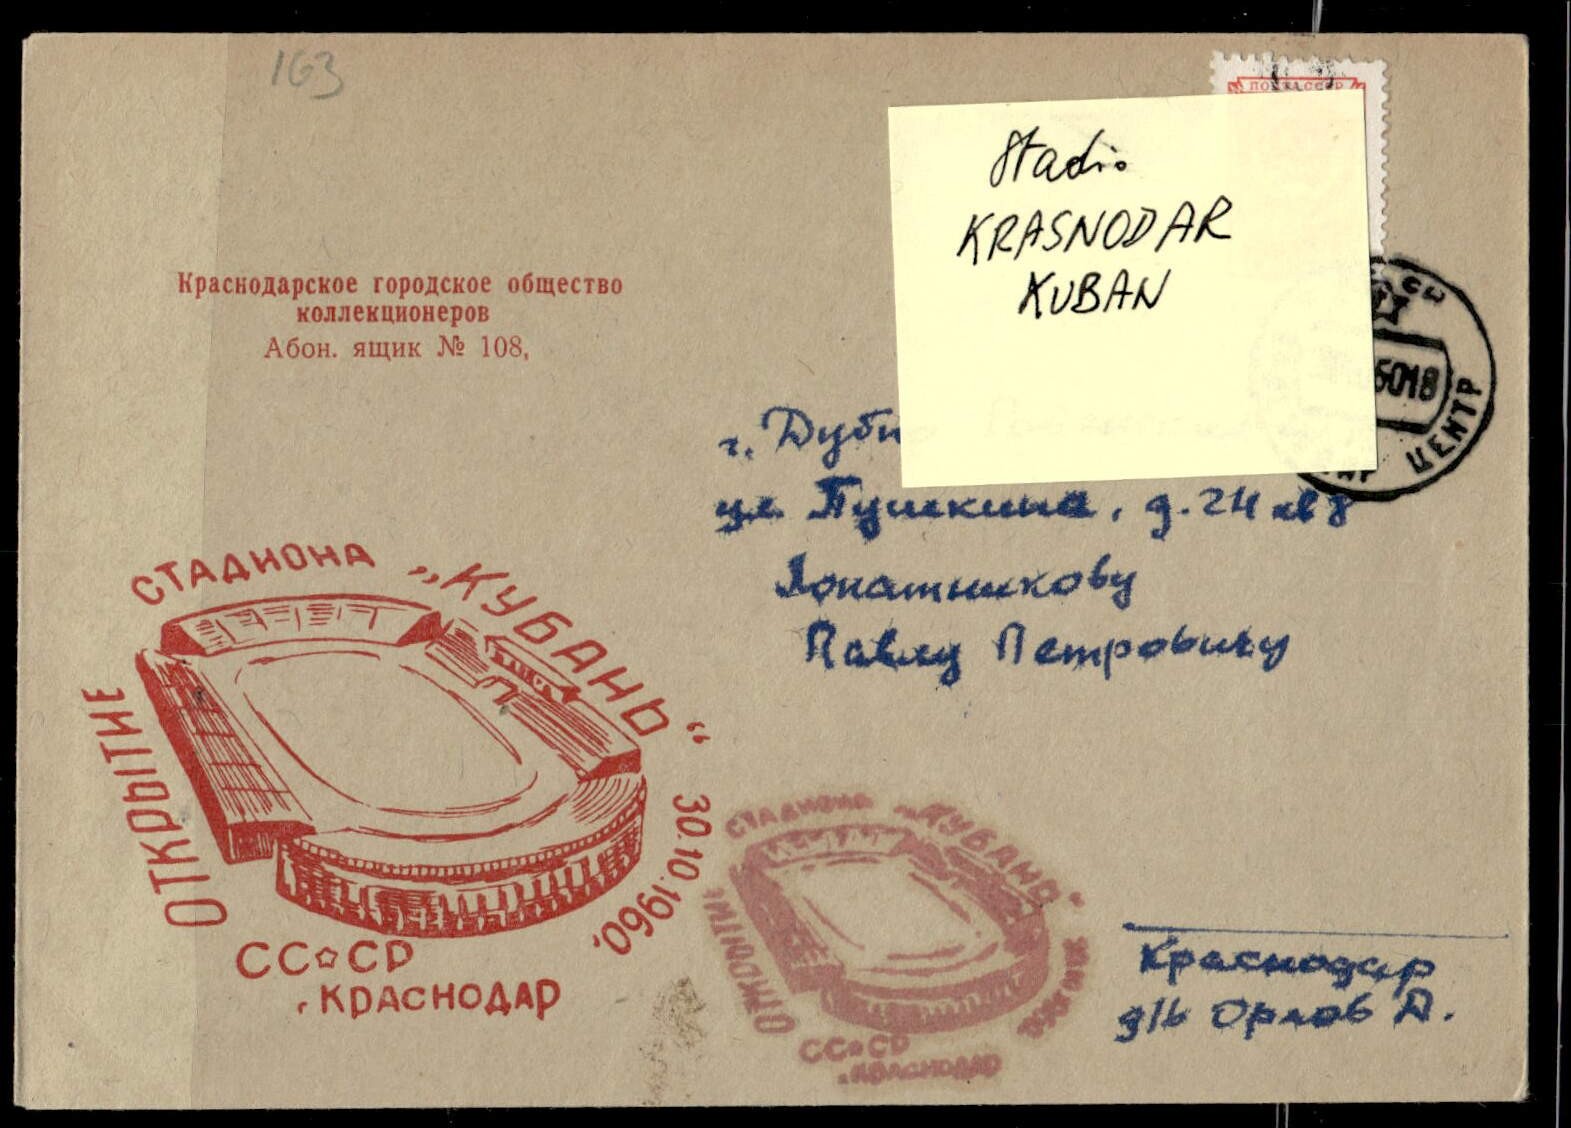 163
ПОЧТА СССР
Stadio
KRASNODAR
KUBAN
Краснодарское городское общество
коллекционеров
Абон. ящик № 108,
6018
ЦЕНТР
г.
ул. Пушкина, д. 24 кв 8
Лопатникову
Павлу Петровичу
ОТКРЫТИЕ СТАДИОНА „КУБАНЬ" 30.10.1960,
СССР
г. КРАСНОДАР
ОТКРЫТИЕ СТАДИОНА „КУБАНЬ" 30.10.1960,
СССР
г. КРАСНОДАР
Краснодар
д/в Орлов А.